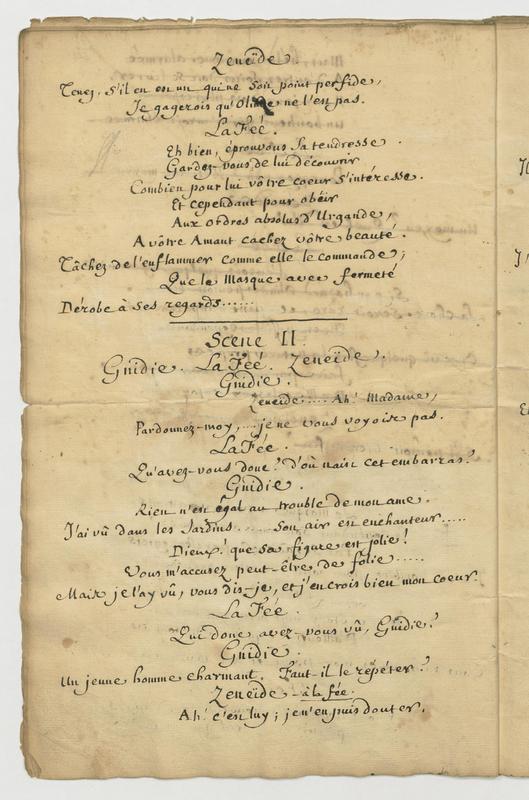 Zeneïde.
Tenez, s'il en est un qui ne soit point perfide,
Je gagerois qu'Olinde ne l'est pas.
La Fée.
Eh bien, éprouvons sa tendresse.
Gardez-vous de lui découvrir
Combien pour lui vôtre coeur s'intéresse.
Et cependant pour obéir
Aux ordres absolus d'Urgande,
A vôtre Amant cachez vôtre beauté.
Tâchez de l'enflammer comme elle le commande;
Que le Masque avec fermeté
Dérobe à ses regards......
Scene II
Gnidie. La Fée. Zeneïde.
Gnidie.
Zeneïde..... Ah! Madame,
Pardonnez-moy,... je ne vous voyois pas.
La Fée.
Qu'avez-vous donc? d'où naist cet embarras?
Gnidie.
Rien n'est égal au trouble de mon ame.
J'ai vû dans les Jardins..... Son air est enchanteur.....
Dieux! que sa figure est jolie!
Vous m'accusez peut-être de folie.....
Mais je l'ay vû, vous dis-je, et j'en crois bien mon coeur.
La Fée.
Qui donc avez-vous vû, Gnidie?
Gnidie.
Un jeune homme charmant. Faut-il le répéter?
Zeneïde - à la fée.
Ah! c'est luy; je n'en puis douter.